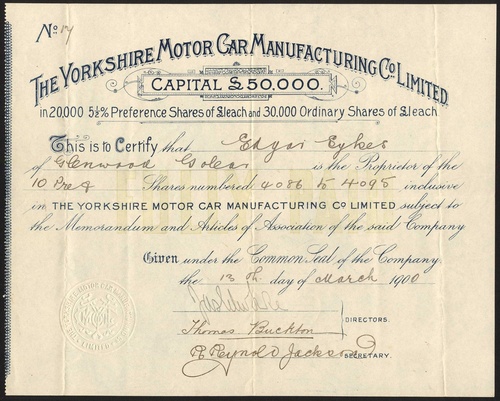 No 17
THE YORKSHIRE MOTOR CAR MANUFACTURING CO. LIMITED.
CAPITAL £50,000.
in 20,000 5½% Preference Shares of £1 each and 30,000 Ordinary Shares of £1 each
This is to Certify that Edgar Sykes
of Glenwood Golcar is the Proprietor of the
10 Pref Shares numbered 4086 to 4095 inclusive
in THE YORKSHIRE MOTOR CAR MANUFACTURING CO LIMITED subject to
the Memorandum and Articles of Association of the said Company
Given under the Common Seal of the Company,
the 13th day of March 1900
Thomas Buckton
DIRECTORS.
R Reynold Jackson
SECRETARY.